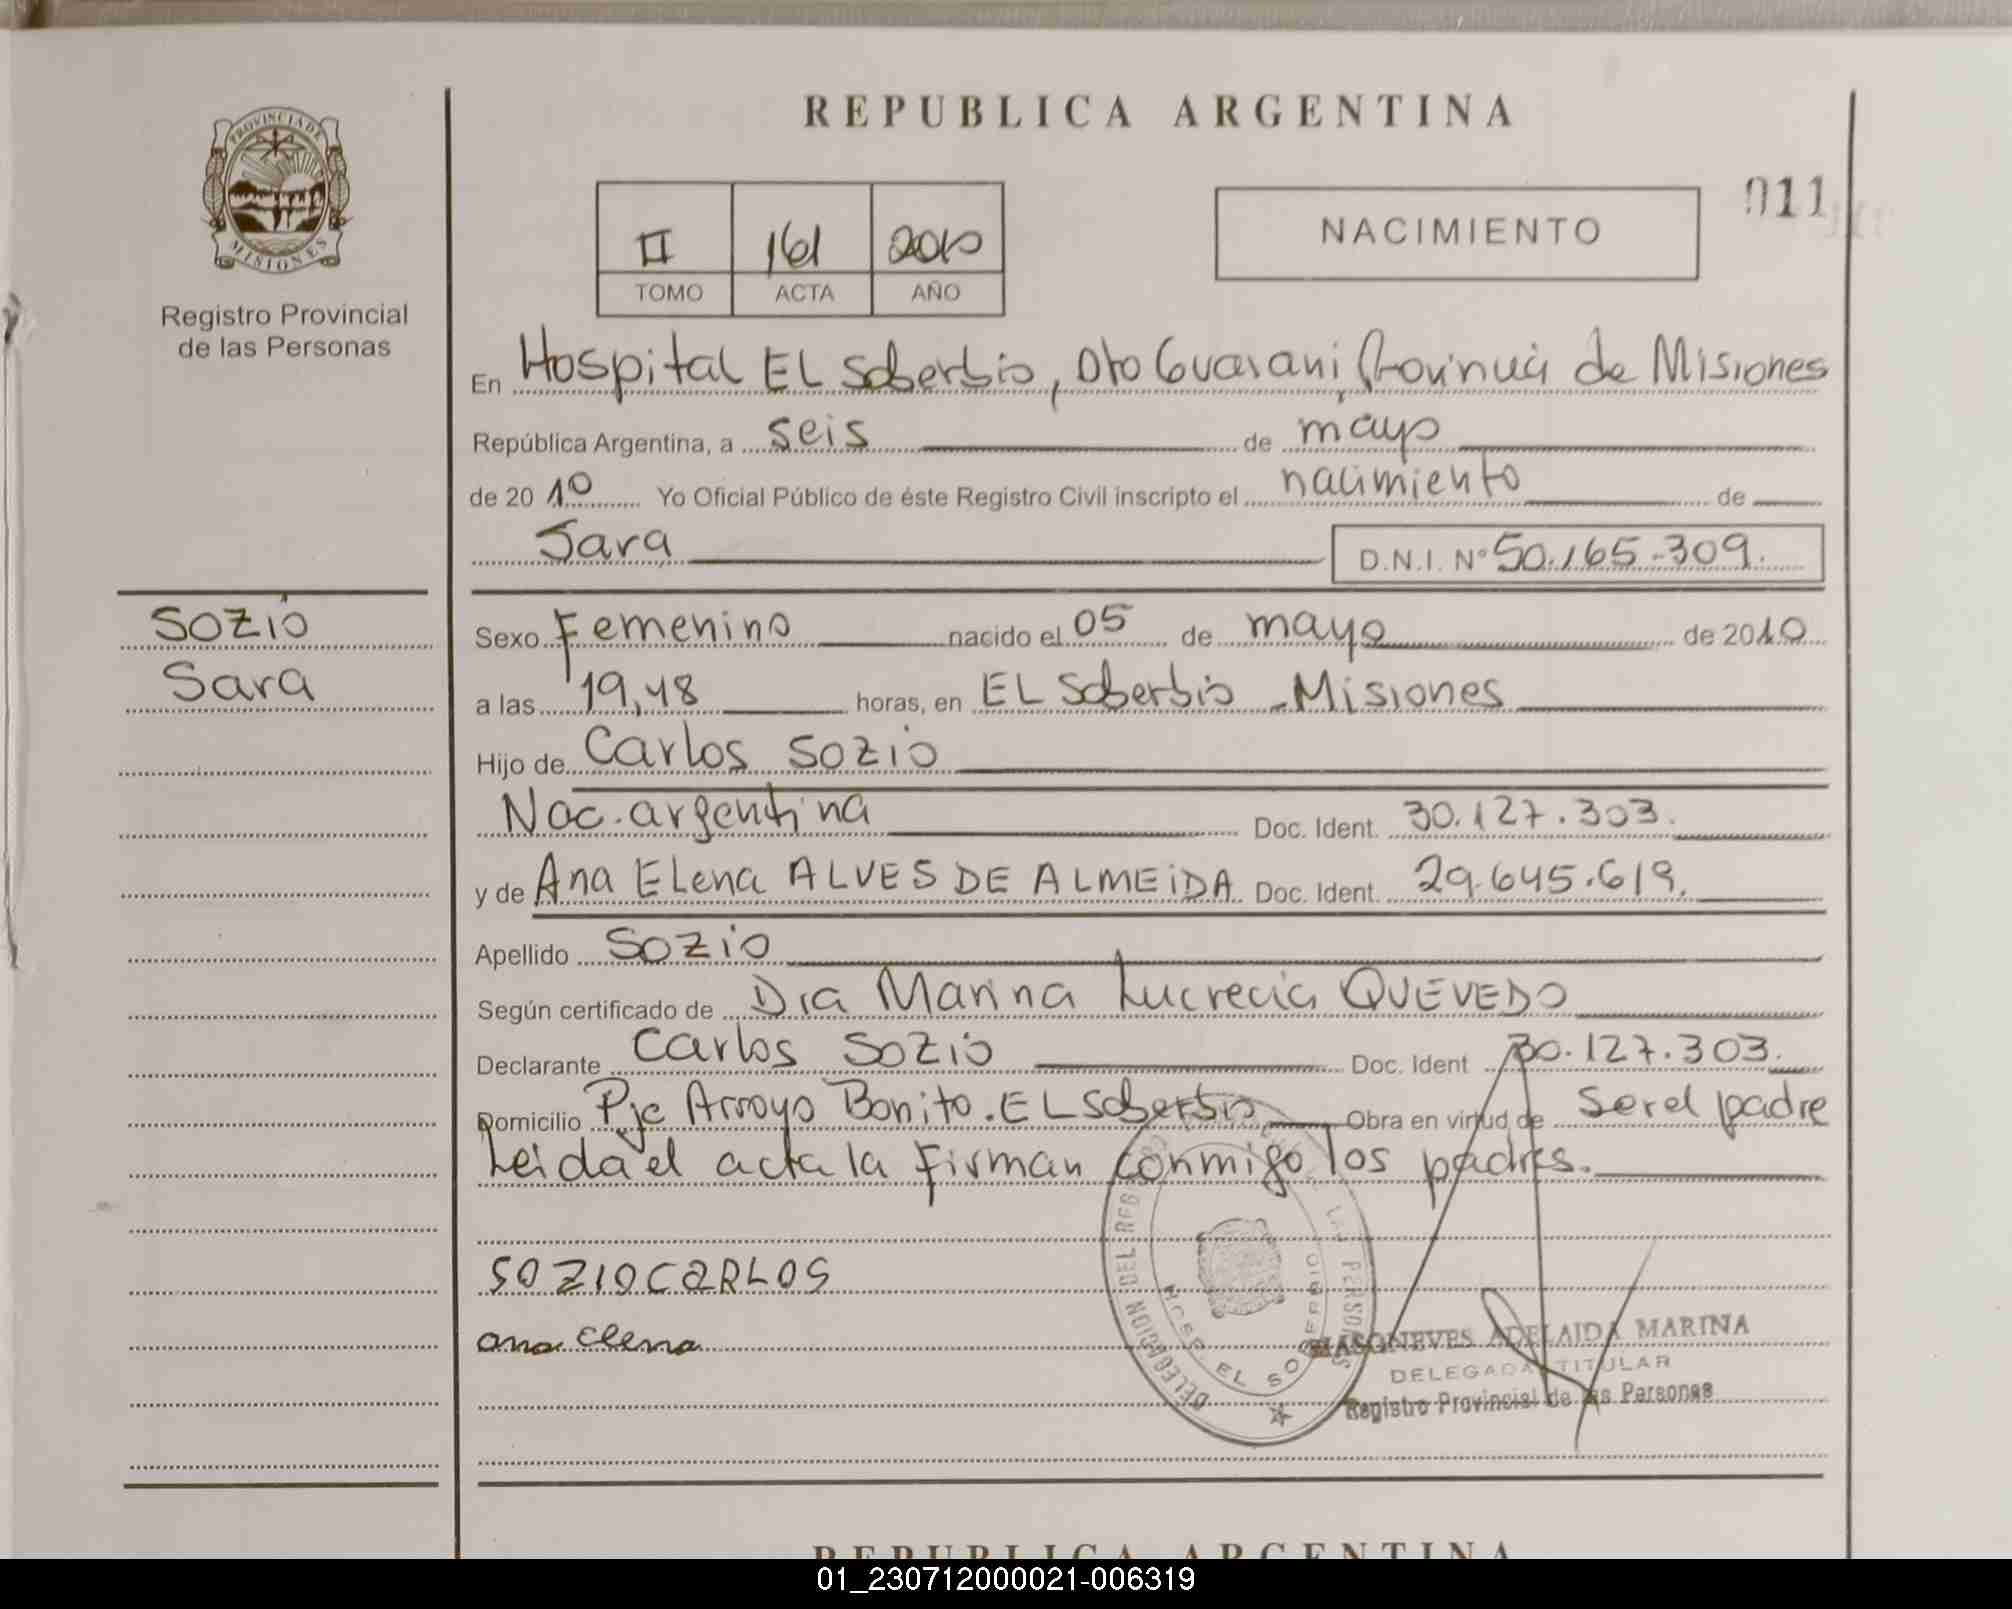 REPUBLICA ARGENTINA
PROVINCIA DE
MISIONES
Registro Provincial
de las Personas
II 161 2010
TOMO ACTA AÑO
NACIMIENTO
011
En Hospital EL Soberbio, Dto Guarani, Provincia de Misiones
República Argentina, a seis de mayo
de 20 10 Yo Oficial Público de éste Registro Civil inscripto el nacimiento de
Sara D.N.I. Nº 50.165.309.
Sozio
Sara
Sexo Femenino nacido el 05 de mayo de 2010
a las 19,48 horas, en EL Soberbio - Misiones
Hijo de Carlos Sozio
Nac. argentina Doc. Ident. 30.127.303.
y de Ana Elena ALVES DE ALMEIDA Doc. Ident. 29.645.619.
Apellido Sozio
Según certificado de Dra Marina Lucrecia QUEVEDO
Declarante Carlos Sozio Doc. Ident 30.127.303.
Domicilio Pje Arroyo Bonito. EL Soberbio Obra en virtud de Ser el padre
Leida el acta la firman conmigo los padres.
SOZIO CARLOS
ana Elena
DELEGACION DEL REG LAS PERSONAS
EL SOBERBIO
ADELAIDA MARINA
DELEGADA TITULAR
Registro Provincial de las Personas
REPUBLICA ARGENTINA
01_230712000021-006319